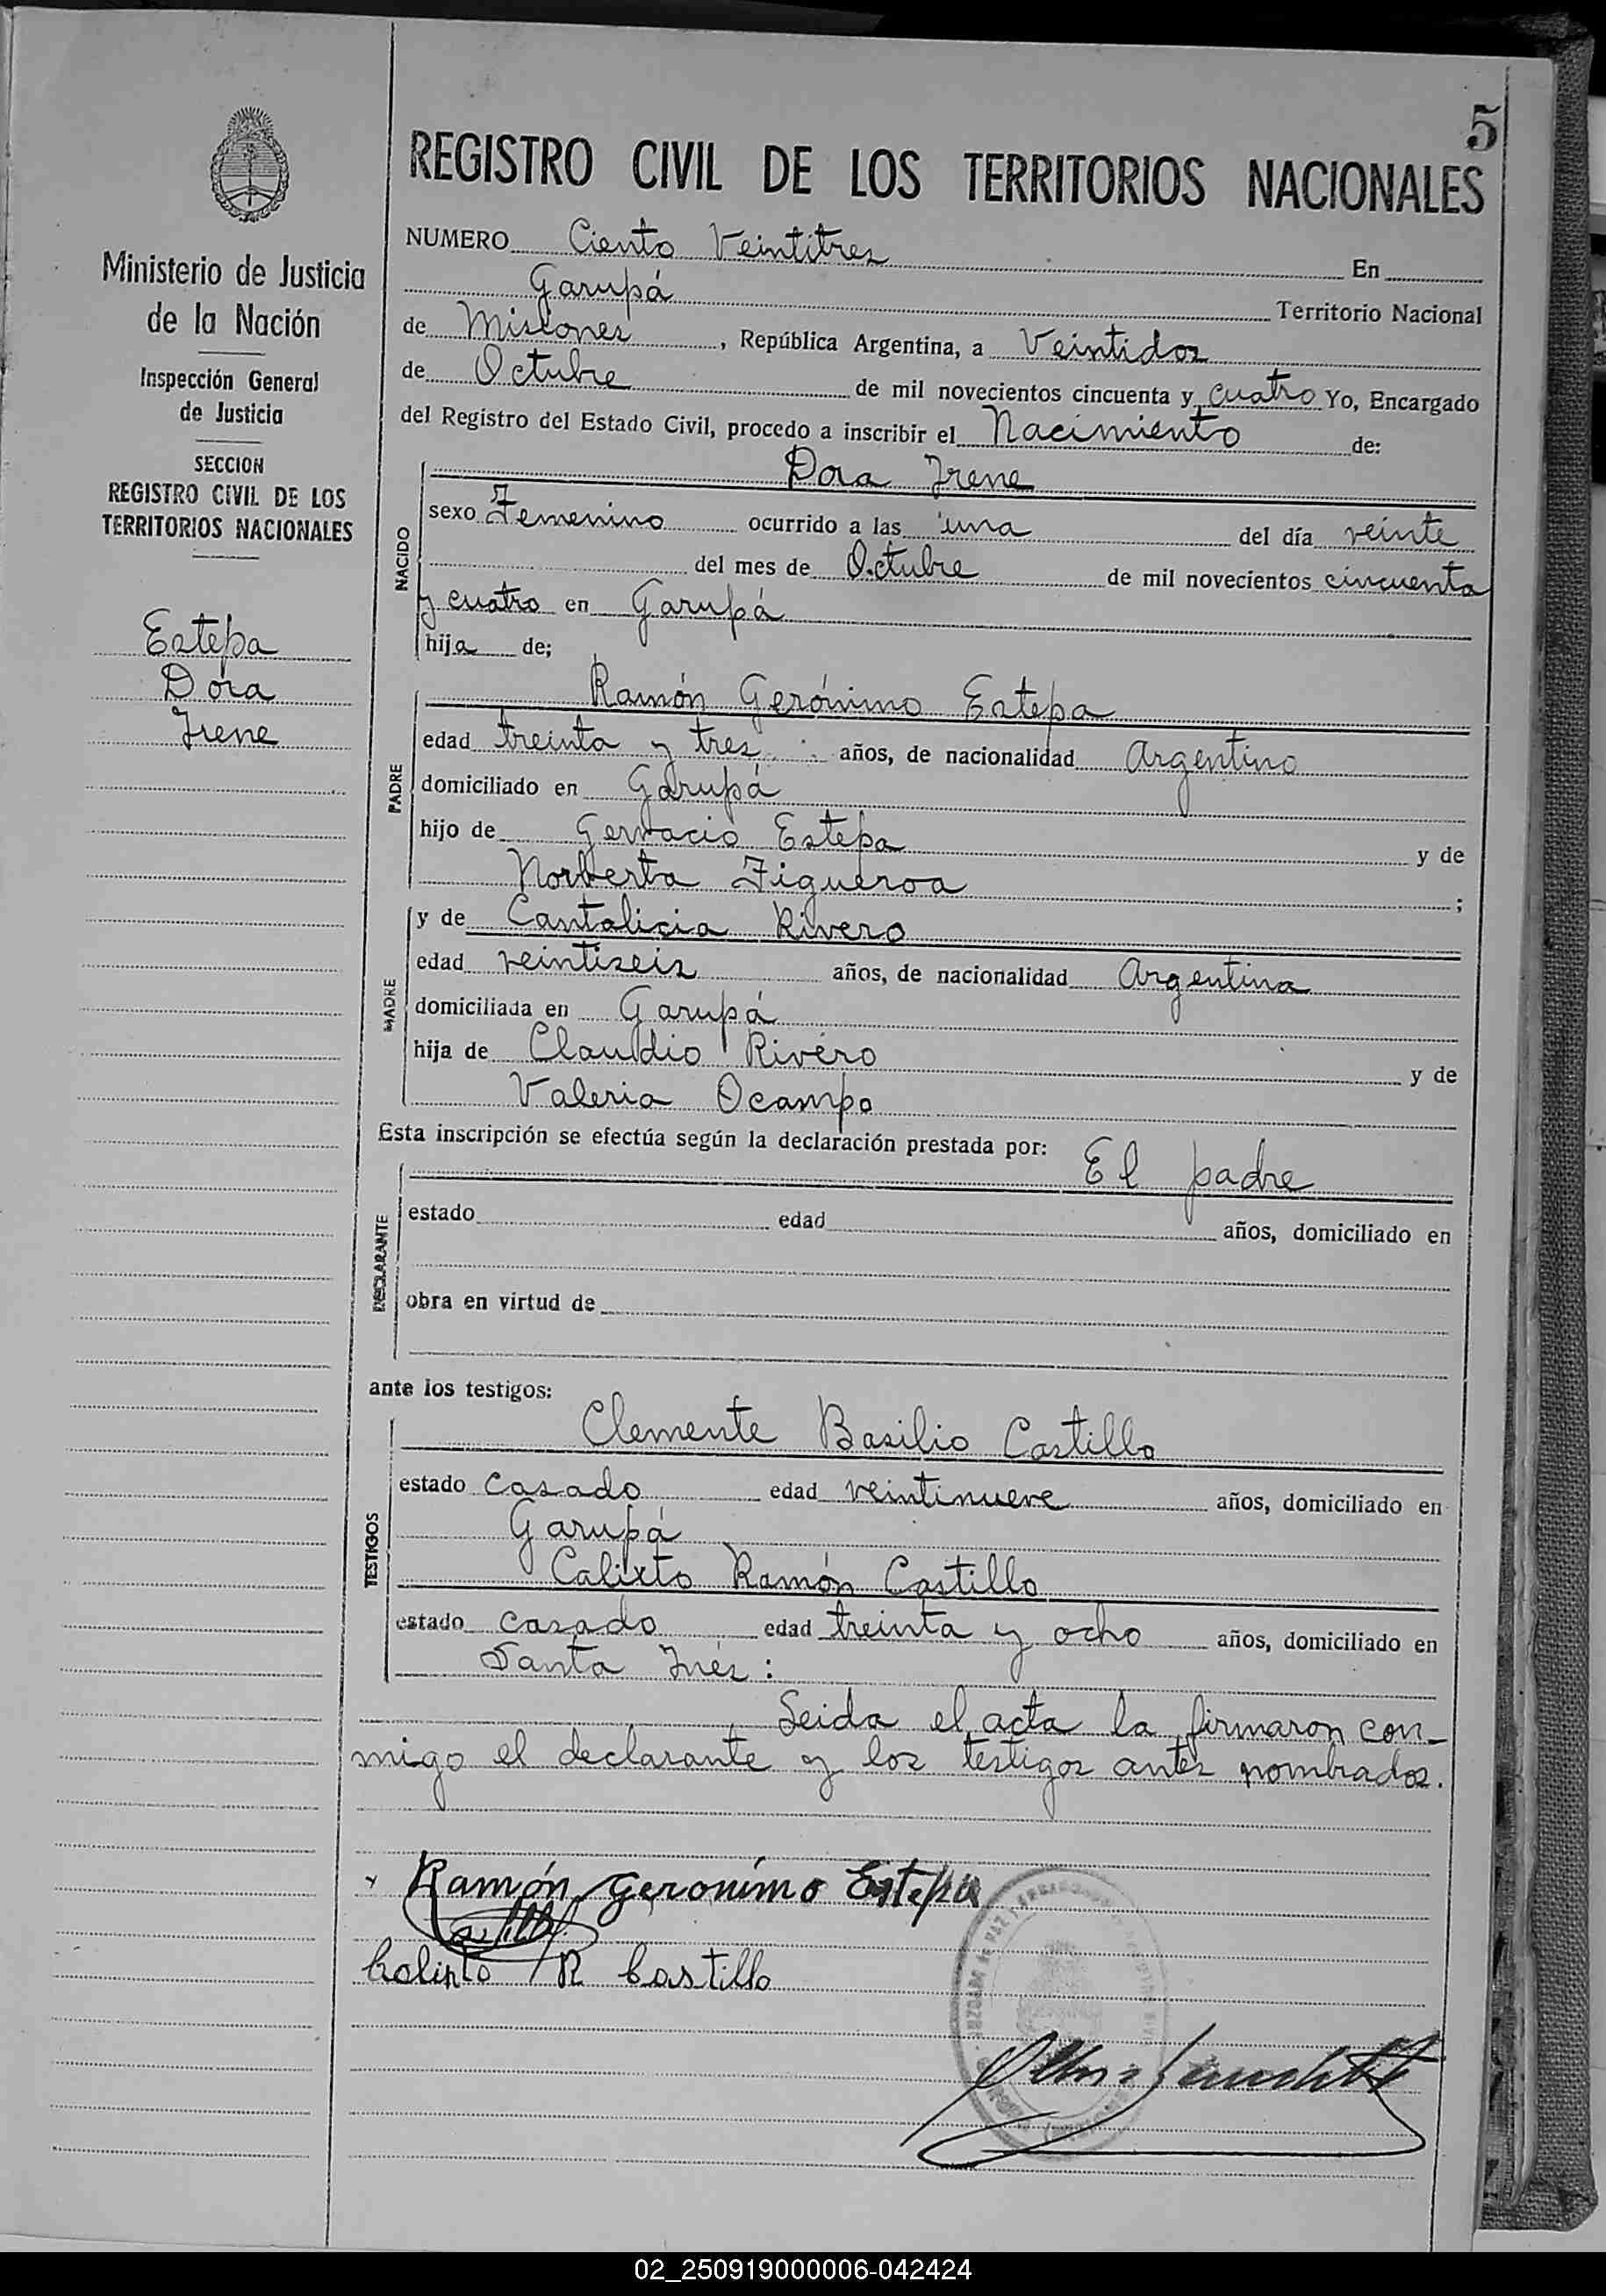 5
REGISTRO CIVIL DE LOS TERRITORIOS NACIONALES
Ministerio de Justicia
de la Nación
Inspección General
de Justicia
SECCION
REGISTRO CIVIL DE LOS
TERRITORIOS NACIONALES
Estepa
Dora
Irene
NUMERO Ciento Veintitres En
Garupá Territorio Nacional
de Misiones, República Argentina, a Veintidos
de Octubre de mil novecientos cincuenta y cuatro Yo, Encargado
del Registro del Estado Civil, procedo a inscribir el Nacimiento de:
NACIDO
Dora Irene
sexo Femenino ocurrido a las una del día veinte
del mes de Octubre de mil novecientos cincuenta
y cuatro en Garupá
hija de;
PADRE
Ramón Gerónimo Estepa
edad treinta y tres años, de nacionalidad Argentino
domiciliado en Garupá
hijo de Gervacio Estepa y de
Norberta Figueroa ;
MADRE
y de Cantalicia Rivero
edad veintiseis años, de nacionalidad Argentina
domiciliada en Garupá
hija de Claudio Rivero y de
Valeria Ocampo
Esta inscripción se efectúa según la declaración prestada por: El padre
DECLARANTE
estado edad años, domiciliado en
obra en virtud de
ante los testigos:
TESTIGOS
Clemente Basilio Castillo
estado Casado edad veintinueve años, domiciliado en
Garupá
Calixto Ramón Castillo
estado casado edad treinta y ocho años, domiciliado en
Santa Inés:
Leida el acta la firmaron con-
migo el declarante y los testigos antes nombrados.
Ramón Geronimo Estepa
Calixto R Castillo
02_250919000006-042424